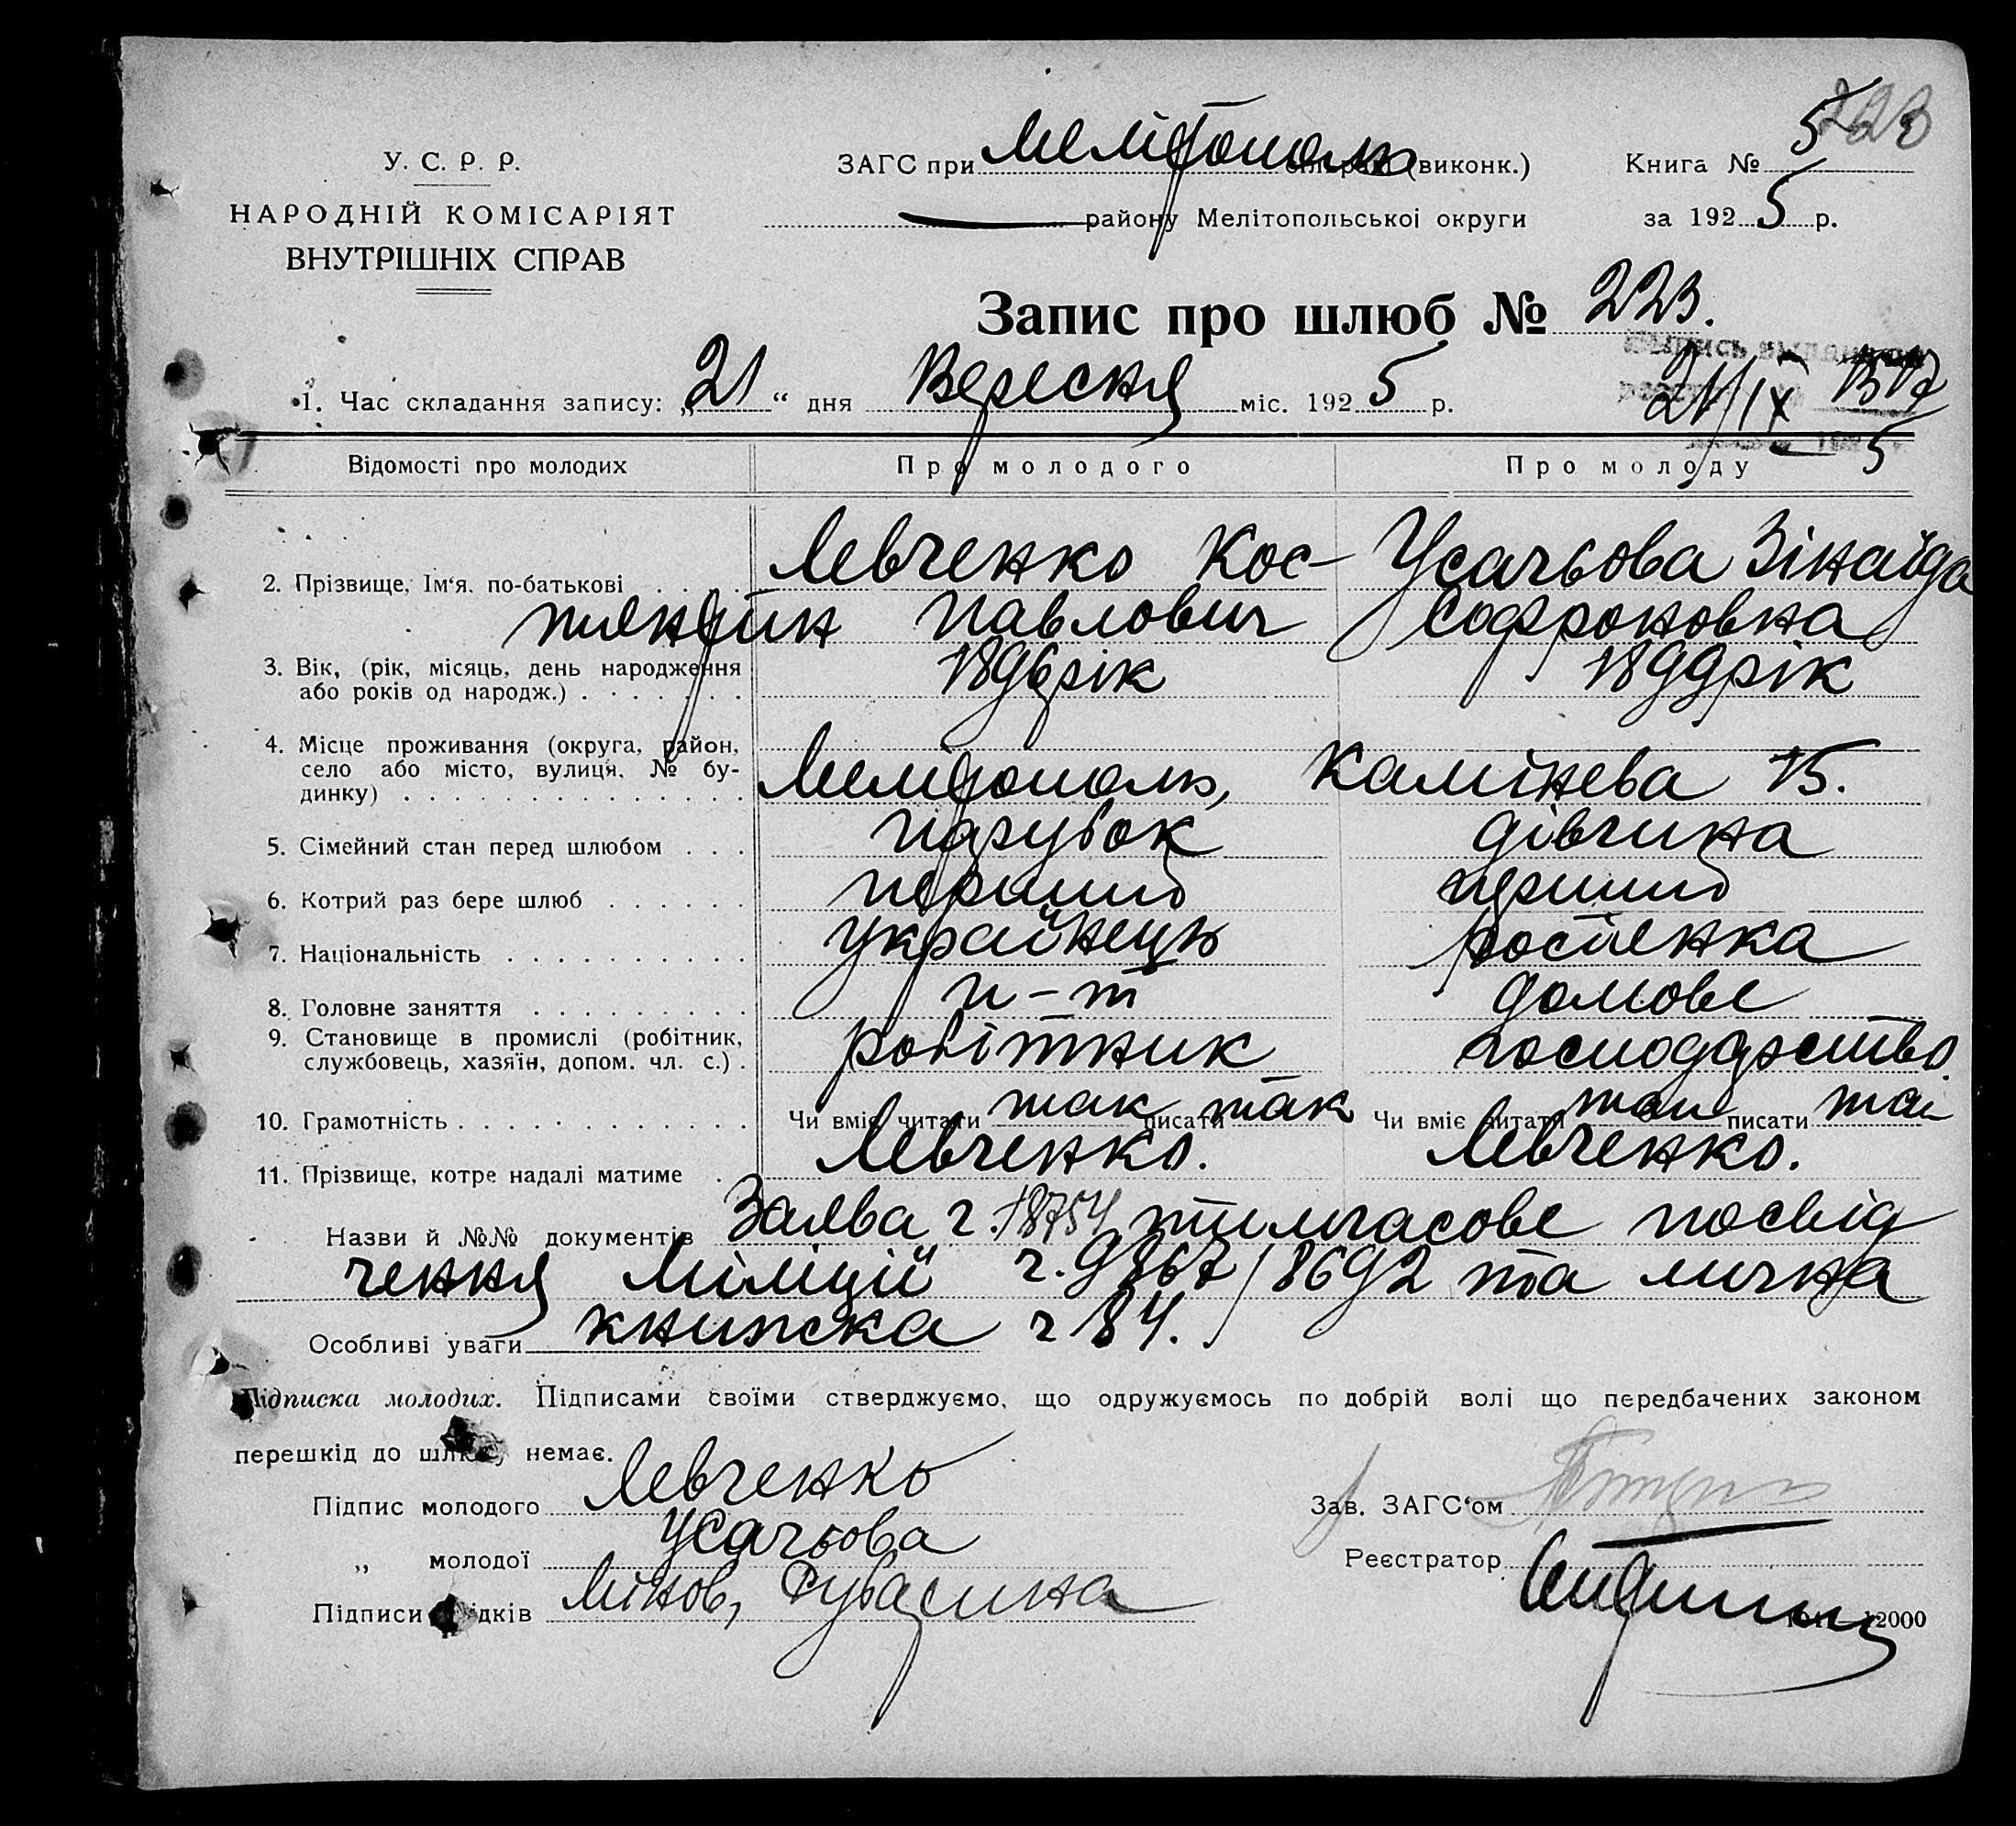 223
У. С. Р. Р.
НАРОДНІЙ КОМІСАРІЯТ
ВНУТРІШНІХ СПРАВ
ЗАГС при Мелітополь (виконк.)
Книга № 5
району Мелітопольської округи
за 1925 р.
Запис про шлюб № 223.
1. Час складання запису: „21“ дня Вересня міс. 1925 р.
21/IX
5
Відомості про молодих
Про молодого
Про молоду
2. Прізвище, Ім'я. по-батькові . . . . Левченко Кос-
тянтин Павлович
Усачьова Зінаїда
Софроновна
3. Вік, (рік, місяць, день народження
або років од народж.) . . . . . . .
1896 рік
1899 рік
4. Місце проживання (округа, район,
село або місто, вулиця. № бу-
динку) . . . . . . . . . . . . . . .
Мелітополь, Камінева 15.
5. Сімейний стан перед шлюбом . . . парубок дівчина
6. Котрий раз бере шлюб . . . . . . перший перший
7. Національність . . . . . . . . . . українець росіенка
8. Головне заняття . . . . . . . . . п-т домове
9. Становище в промислі (робітник,
службовець, хазяїн, допом. чл. с.) .
робітник господарство.
10. Грамотність . . . . . . . . . . . . Чи вміє читати так писати так Чи вміє читати так писати так
11. Прізвище, котре надалі матиме . Левченко. Левченко.
Назви й №№ документів Заява ч. 18754 тимчасове посвід
чення Міліції ч. 9867/8692 та лична
Особливі уваги книжка ч 84.
Підписка молодих. Підписами своїми стверджуємо, що одружуємось по добрій волі що передбачених законом
перешкід до шлюбу немає.
Підпис молодого Левченко
„ молодої Усачьова
Підписи свідків Мінов,
Зав. ЗАГС'ом
Реєстратор
12000